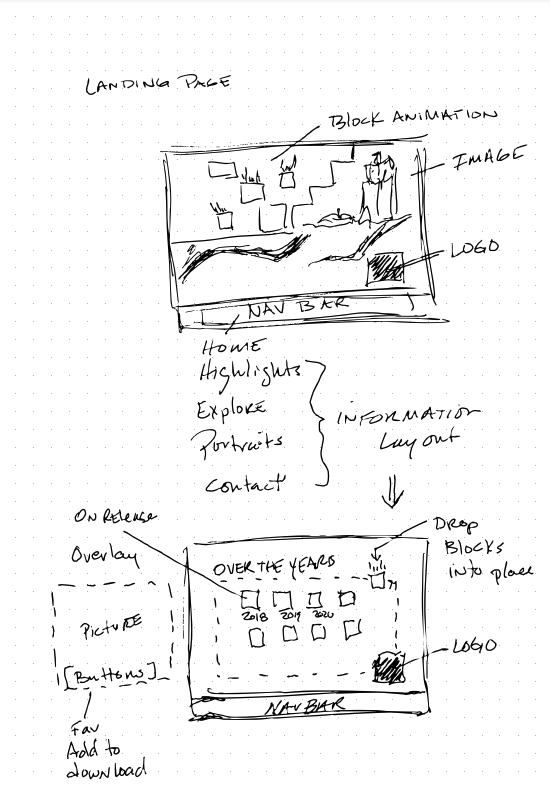 LANDING PAGE
BLOCK ANIMATION
IMAGE
LOGO
NAV BAR
HOME
Highlights
Explore
Portraits
Contact
INFORMATION
Layout
ON RELEASE
Overlay
PICTURE
[Buttons]
Fav
Add to
download
OVER THE YEARS
2018 2019 2020
DROP
Blocks
into place
LOGO
NAV BAR